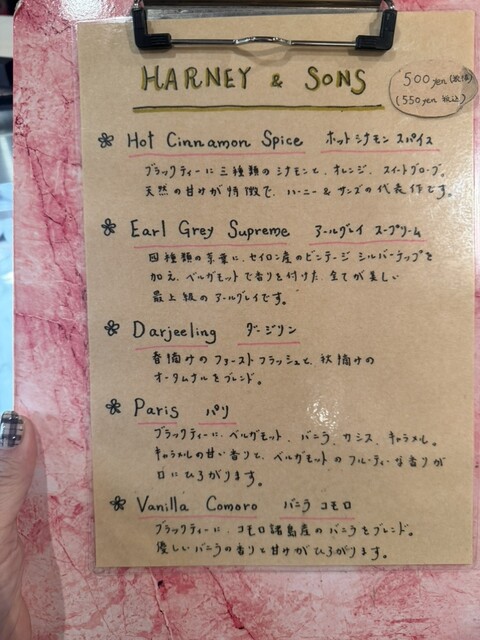 HARNEY & SONS
500yen(税抜)
(550yen 税込)
Hot Cinnamon Spice ホットシナモン スパイス
ブラックティーに三種類のシナモンと、オレンジ、スイートグローブ。
天然の甘けが特徴で、ハーニー&サンズの代表作です。
Earl Grey Supreme アールグレイ スープリーム
四種類の茶葉に、セイロン産のビンテージ シルバーチップを
加え、ベルガモットで香りを付けた、全てが美しい
最上級のアールグレイです。
Darjeeling ダージリン
春摘みのファーストフラッシュと、秋摘みの
オータムナルをブレンド。
Paris パリ
ブラックティーに、ベルガモット、バニラ、カシス、キャラメル。
キャラメルの甘い香りと、ベルガモットのフルーティーな香りが
口にひろがります。
Vanilla Comoro バニラ コモロ
ブラックティーに、コモロ諸島産のバニラをブレンド。
優しいバニラの香りと甘けがひろがります。